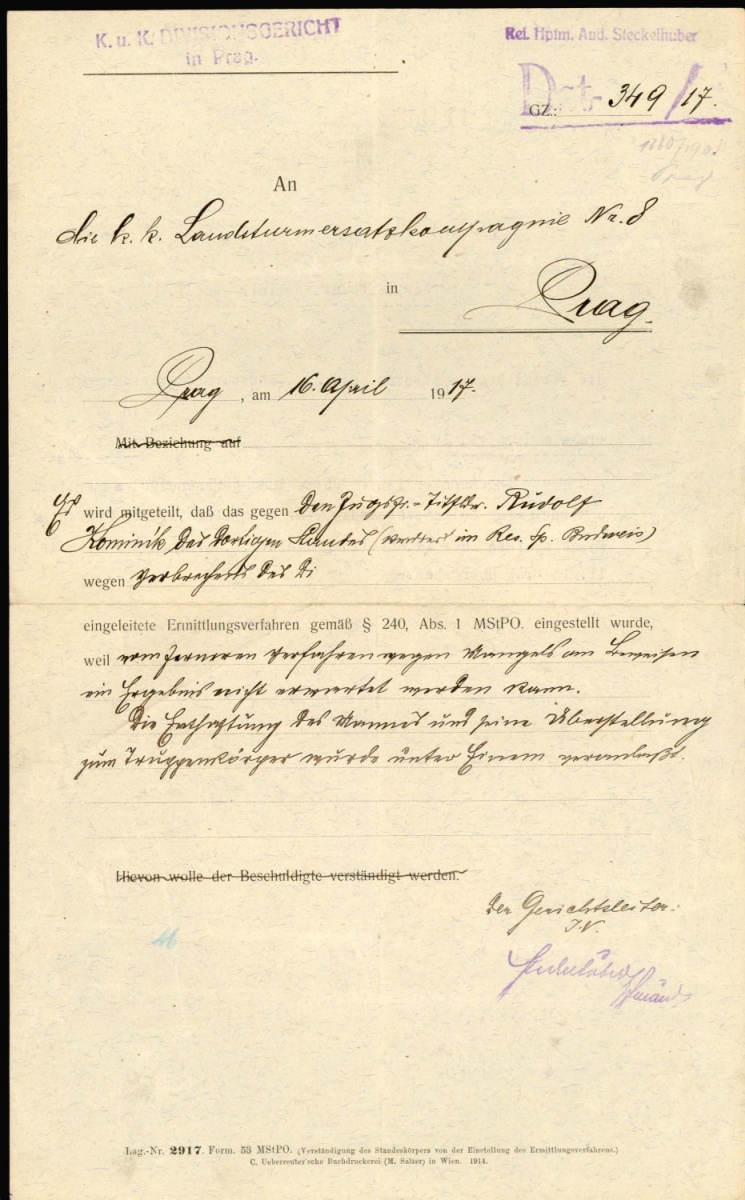 K. u. K. DIVISIONSGERICHT
in Prag.
Ref. Hptm. Aud. Steckelhuber
Dst-
GZ.: 349/17.
An
die k. k. Landsturmersatzkompagnie Nr. 8
in
Prag.
Prag, am 16. April 1917.
Mit Beziehung auf
Es wird mitgeteilt, daß das gegen den Zugsf.-Tit. Rudolf
Kominik des dortigen Standes ( im Res. Sp. Budweis)
wegen Verbrechens des Di
eingeleitete Ermittlungsverfahren gemäß § 240, Abs. 1 MStPO. eingestellt wurde,
weil vom ferneren Verfahren wegen Mangels an Beweisen
ein Ergebnis nicht erwartet werden kann.
Die Enthaftung des Mannes und seine Überstellung
zum Truppenkörper wurde unter Einem veranlaßt.
Hievon wolle der Beschuldigte verständigt werden.
Der Gerichtsleiter:
I.V.
Lag.-Nr. 2917. Form. 53 MStPO. (Verständigung des Standeskörpers von der Einstellung des Ermittlungsverfahrens.)
C. Ueberreuter'sche Buchdruckerei (M. Salzer) in Wien. 1914.